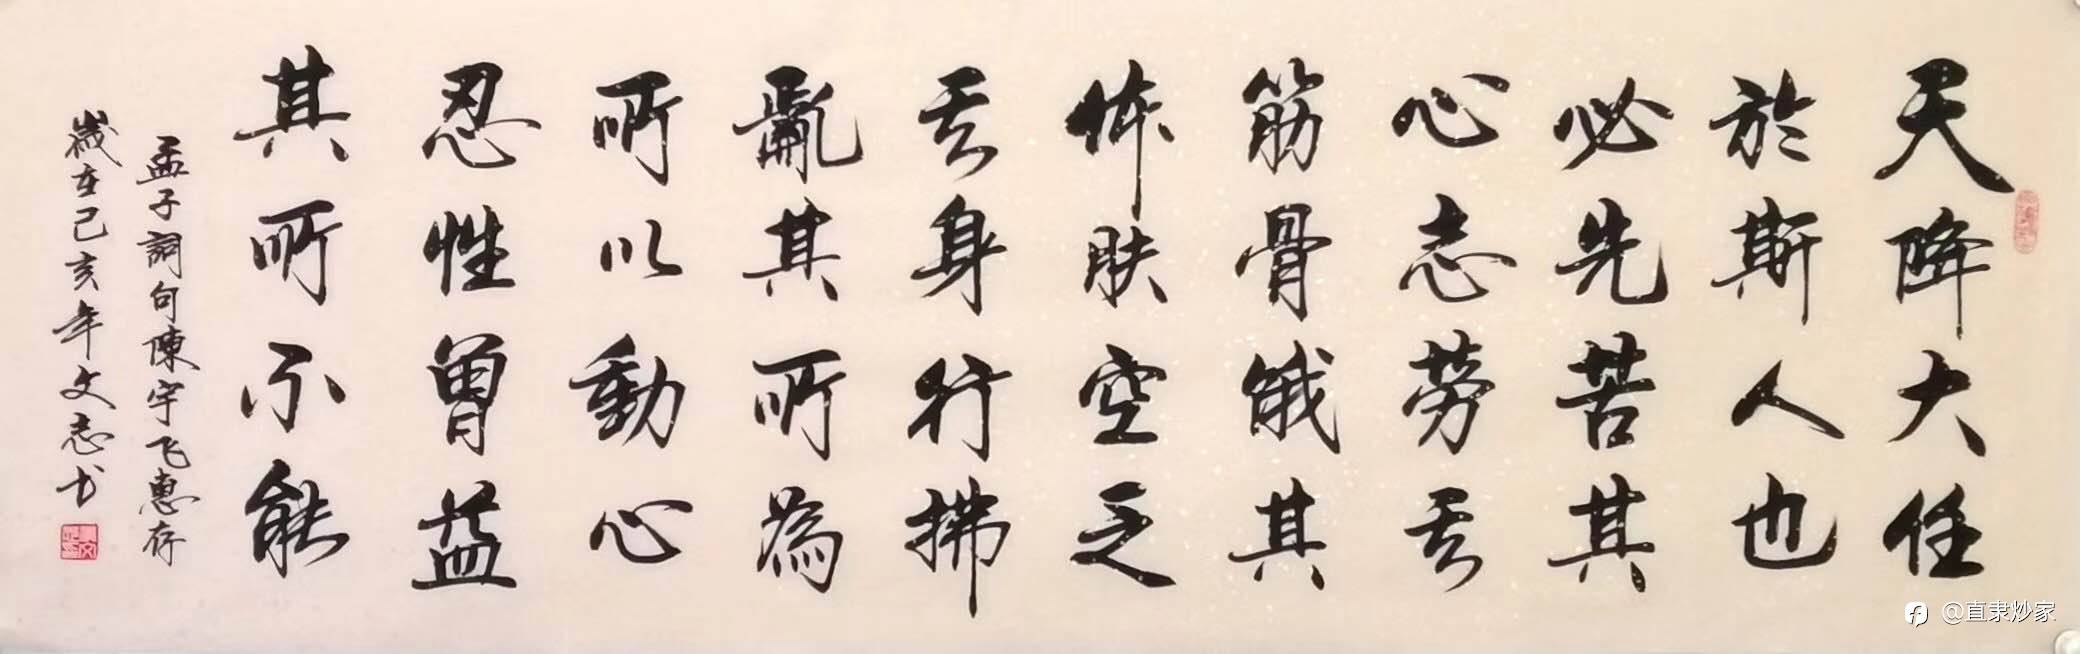 天降大任
於斯人也
必先苦其
心志劳其
筋骨饿其
体肤空乏
其身行拂
亂其所為
所以動心
忍性曾益
其所不能
孟子詞句陳宇飞惠存
歲在己亥年文志书
@直隶炒家